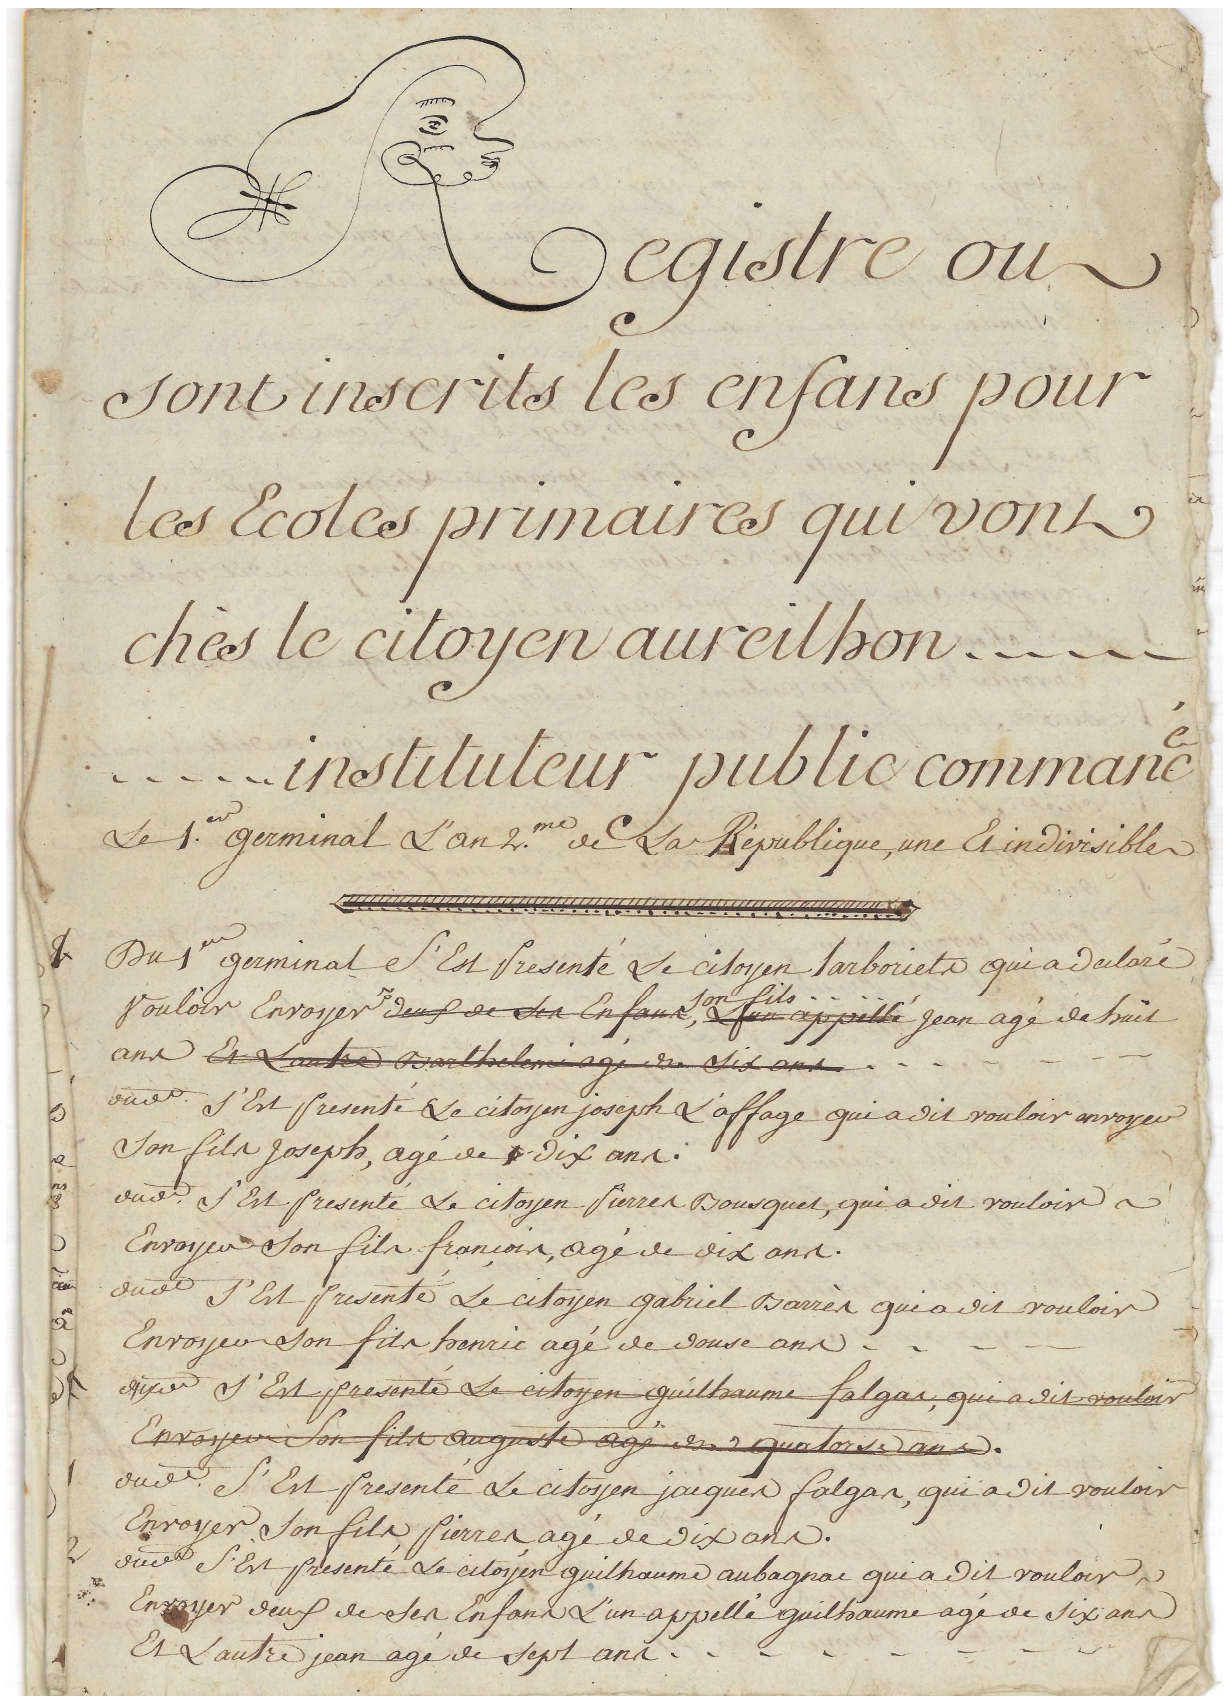 Registre ou
sont inscrits les enfans pour
les Ecoles primaires qui vont
chès le citoyen aureilhon
instituteur public commancé
Le 1.er germinal L'an 2.me de La République, une Et indivisible
Du 1er germinal S'Est Presenté Le citoyen Larboriets qui a declaré
Vouloir Envoyer deux de ses Enfans, L'un appellé son fils jean agé de huit
ans Et L'autre Barthelemi agé de six ans
dud. S'Est Presenté Le citoyen joseph L'affage qui a dit vouloir envoyer
Son fils Joseph, agé de dix ans.
dud. S'Est Presenté Le citoyen Pierres Bousquet, qui a dit vouloir
Envoyer Son fils françois, agé de dix ans.
dud S'Est Presenté Le citoyen gabriel Barrès qui a dit vouloir
Envoyer Son fils henric agé de douse ans
dud S'Est Presenté Le citoyen guilhaume falgas, qui a dit vouloir
Envoyer Son fils auguste agé de quatorse ans.
dud. S'Est Presenté Le citoyen jacques falgas, qui a dit vouloir
Envoyer Son fils Pierres agé de dix ans.
dud S'Est Presenté Le citoyen guilhaume aubagnac qui a dit vouloir
Envoyer deux de Ses Enfans L'un appellé guilhaume agé de six ans
Et L'autre jean agé de sept ans